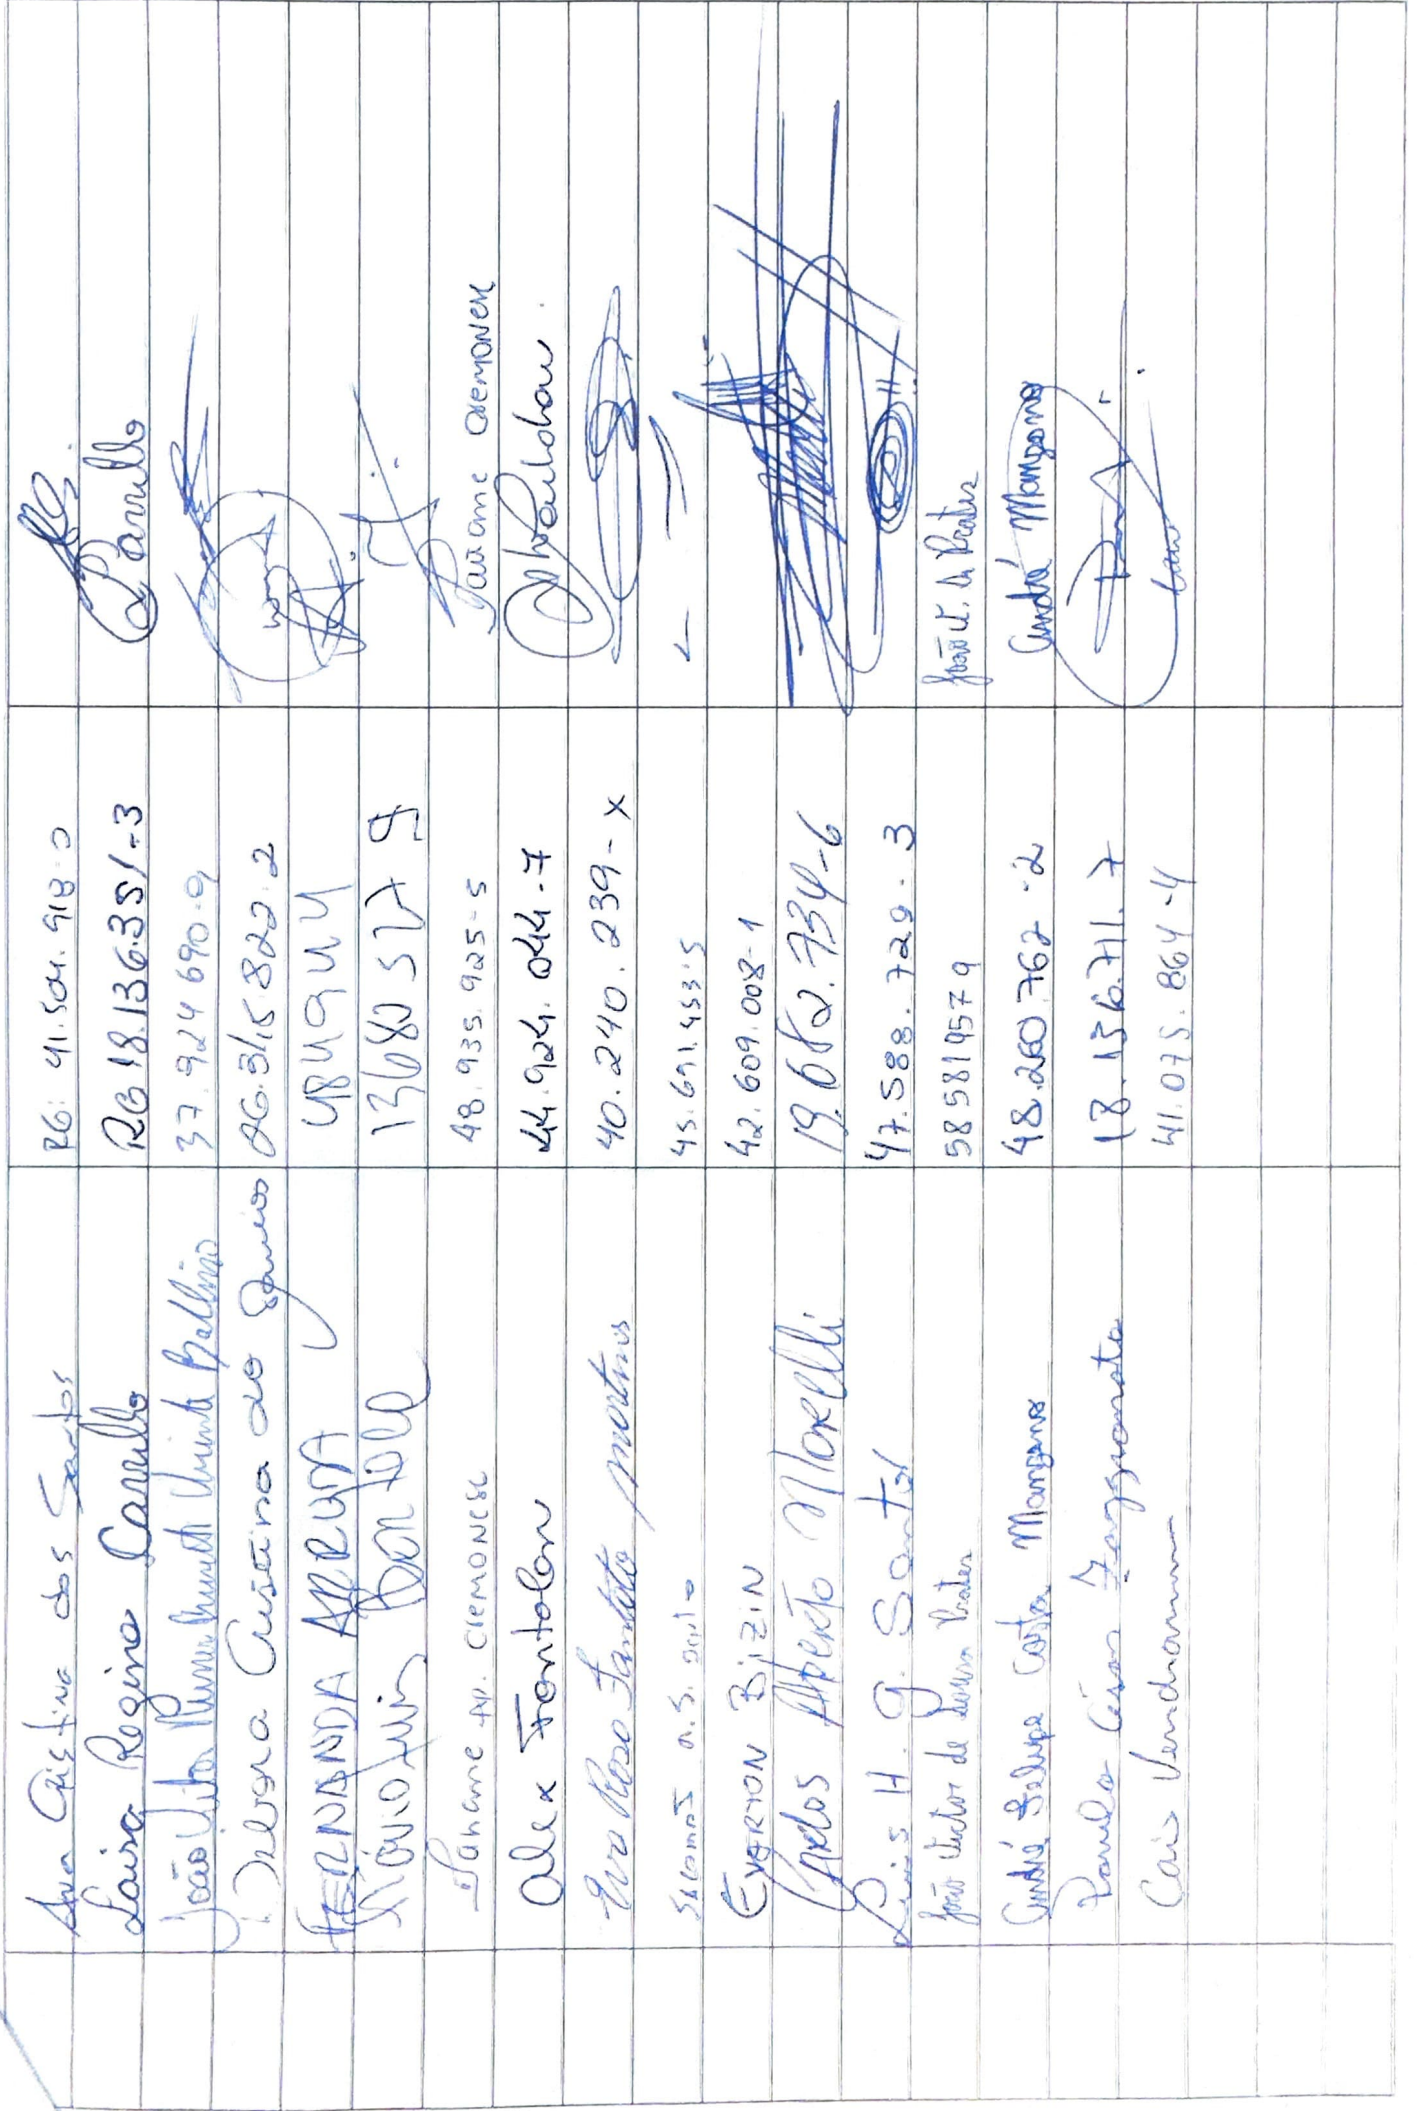 Ana Cristina dos Santos RG: 41.504.918-0
Laisa Regina Carrillo RG 18.136.351-3 Carrillo
João Vitor 37.924 690-9
Debora Cristina do 26.315.822.2
FERNANDA ARRUDA 4849444
Flávio Luis Bontele 13682527 9
Tahiane Ap. CREMONESE 48.935.925-5 Tahiane CREMONESE
Alex Fantolan 44.924.044-7
Eva Rosa Martins 40.240.239-X
45.691.453-5
EVERTON BIZIN 42.609.008-1
CARLOS Alberto Morelli 19.682.734-6
Luis H. G. Santos 47.588.729-3
João Victor de Souza Prates 585819579 João V. S. Prates
André Felipe Costa Manzano 48.260.762-2 André Manzano
Paulo César Zagzanato 18.136.711.7
Caio Vendramin 41.075.864-4